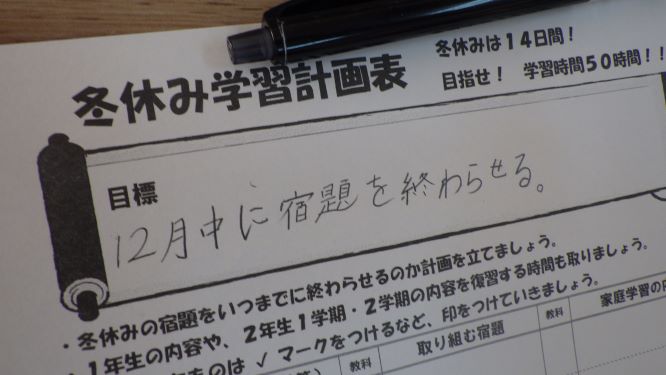 冬休み学習計画表
冬休みは１４日間！
目指せ！　学習時間５０時間！！
目標
12月中に宿題を終わらせる。
・冬休みの宿題をいつまでに終わらせるのか計画を立てましょう。
１年生の内容や、２年生１学期・２学期の内容を復習する時間も取りましょう。
のは ✓ マークをつけるなど、印をつけていきましょう。
教科
取り組む宿題
教科
家庭学習の